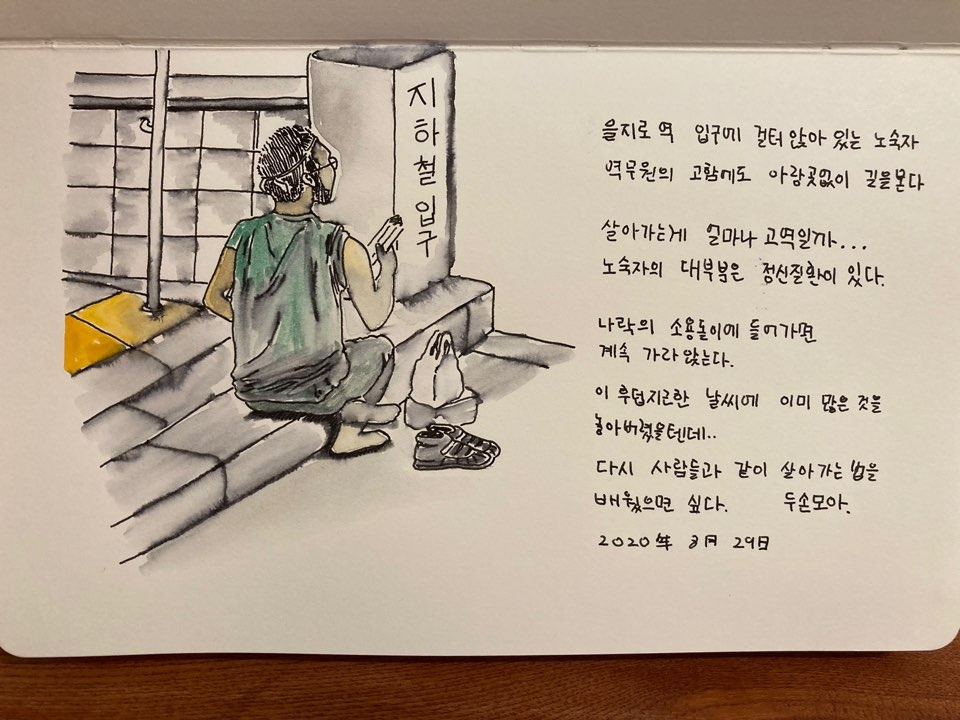 지하철입구
을지로역 입구에 걸터 앉아 있는 노숙자
역무원의 고함에도 아랑곳없이 길을본다
살아가는게 얼마나 고역일까...
노숙자의 대부분은 정신질환이 있다.
나락의 소용돌이에 들어가면
계속 가라앉는다.
이 후덥지근한 날씨에 이미 많은 것을
놓아버렸을텐데..
다시 사람들과 같이 살아가는 법을
배웠으면 싶다. 두손모아.
2020年 8月 29日